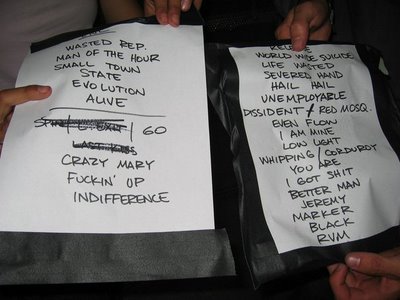 WASTED REP.
MAN OF THE HOUR
SMALL TOWN
STATE
EVOLUTION
ALIVE
/ GO
LAST KISS
CRAZY MARY
FUCKIN' UP
INDIFFERENCE
RELEASE
WORLD WIDE SUICIDE
LIFE WASTED
SEVERED HAND
HAIL HAIL
UNEMPLOYABLE
DISSIDENT / RED MOSQ.
EVEN FLOW
I AM MINE
LOW LIGHT
WHIPPING / CORDUROY
YOU ARE
I GOT SHIT
BETTER MAN
JEREMY
MARKER
BLACK
RVM